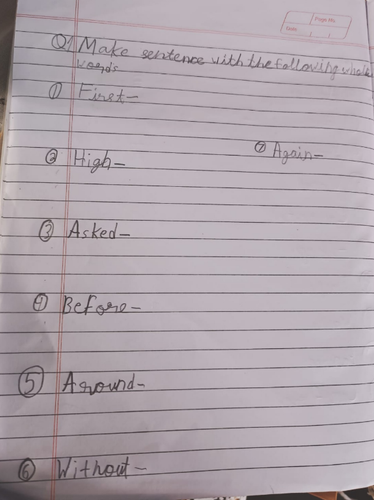 Page No.
Date
Q1 Make sentence with the following whole
words
① First-
② High-
⑦ Again-
③ Asked-
④ Before-
⑤ Around-
⑥ Without-